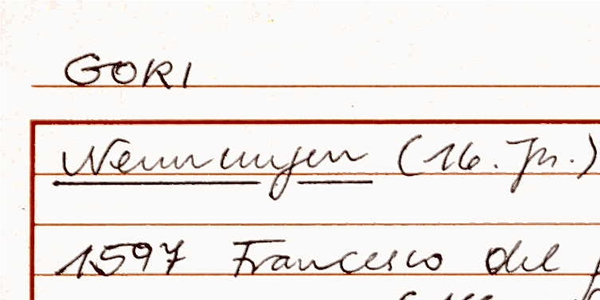 GORI
Nennungen (16. Jh.)
1597 Francesco del